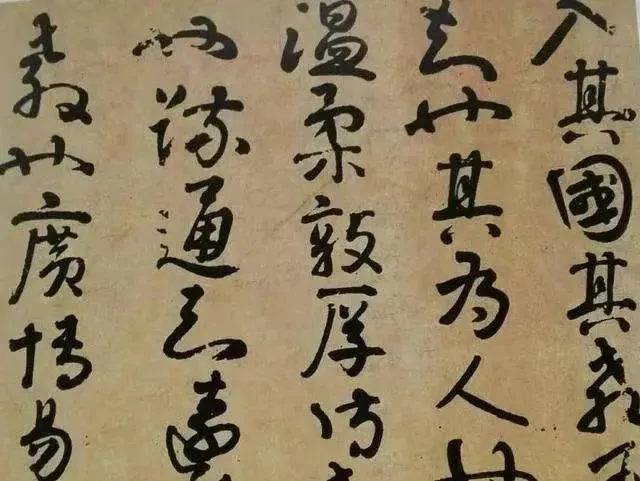 入其國其教可
知也其為人也
溫柔敦厚詩教
也疏通知遠
教也廣博易